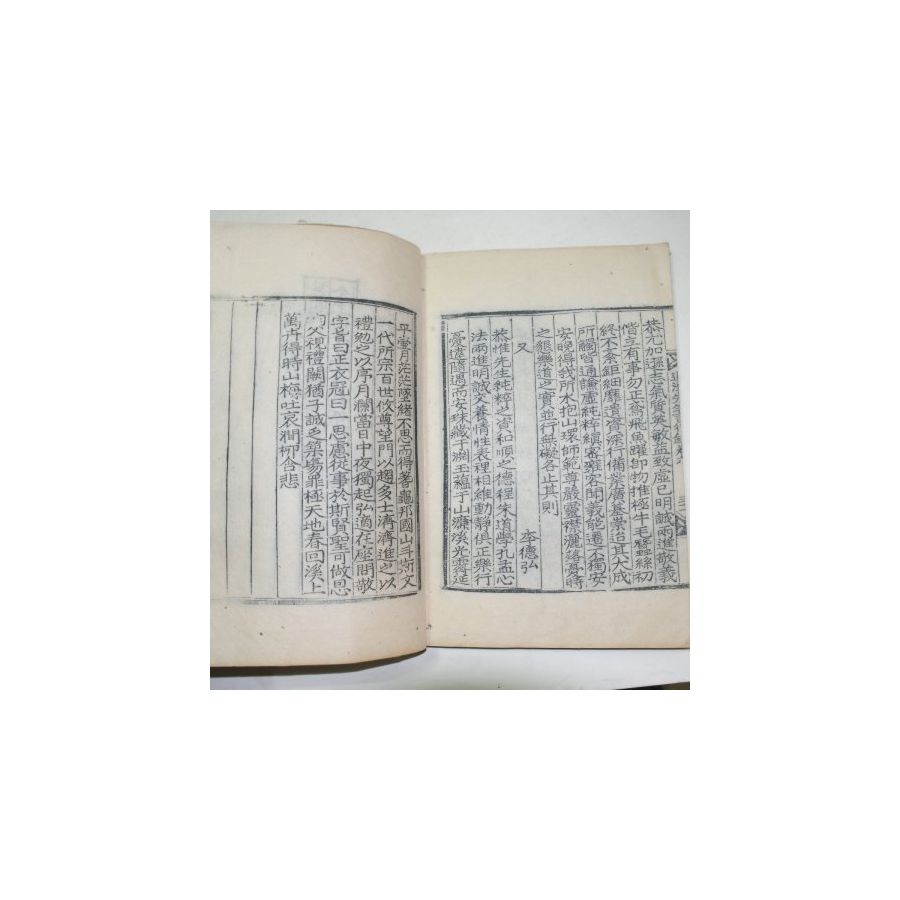 恭尤加遜志氣質英敏益致虛已明誠兩進敬義
偕立有事勿正鳶飛魚躍卽物推極牛毛蚕絲初
終不紊鉅細靡遺資深行備業廣基崇迨其大成
所觸皆通謙虛純粹縝密雍容聞義能遷不獨安
安晩得我所水抱山環師範尊嚴靈襟灑落憂時
之懇樂道之實並行無礙各止其則
又
李德弘
恭惟先生純粹之資和順之德程朱道學孔孟心
法兩進明誠交養情性表裡相維動靜俱正樂行
憂違隨遇而安珠藏于淵玉蘊于山濂溪光霽延
平雪月茫茫墜緒不思而得蓍龜邦國山斗斯文
一代所宗百世攸尊望門以趨多士濟濟進之以
禮勉之以序月瀾當日中夜獨起弘適在座問敬
字旨曰正衣冠曰一思慮從事於斯賢聖可做思
父視禮闕猶子誠乏築場罪極天地春回溪上
萬卉得時山梅吐哀澗柳含悲